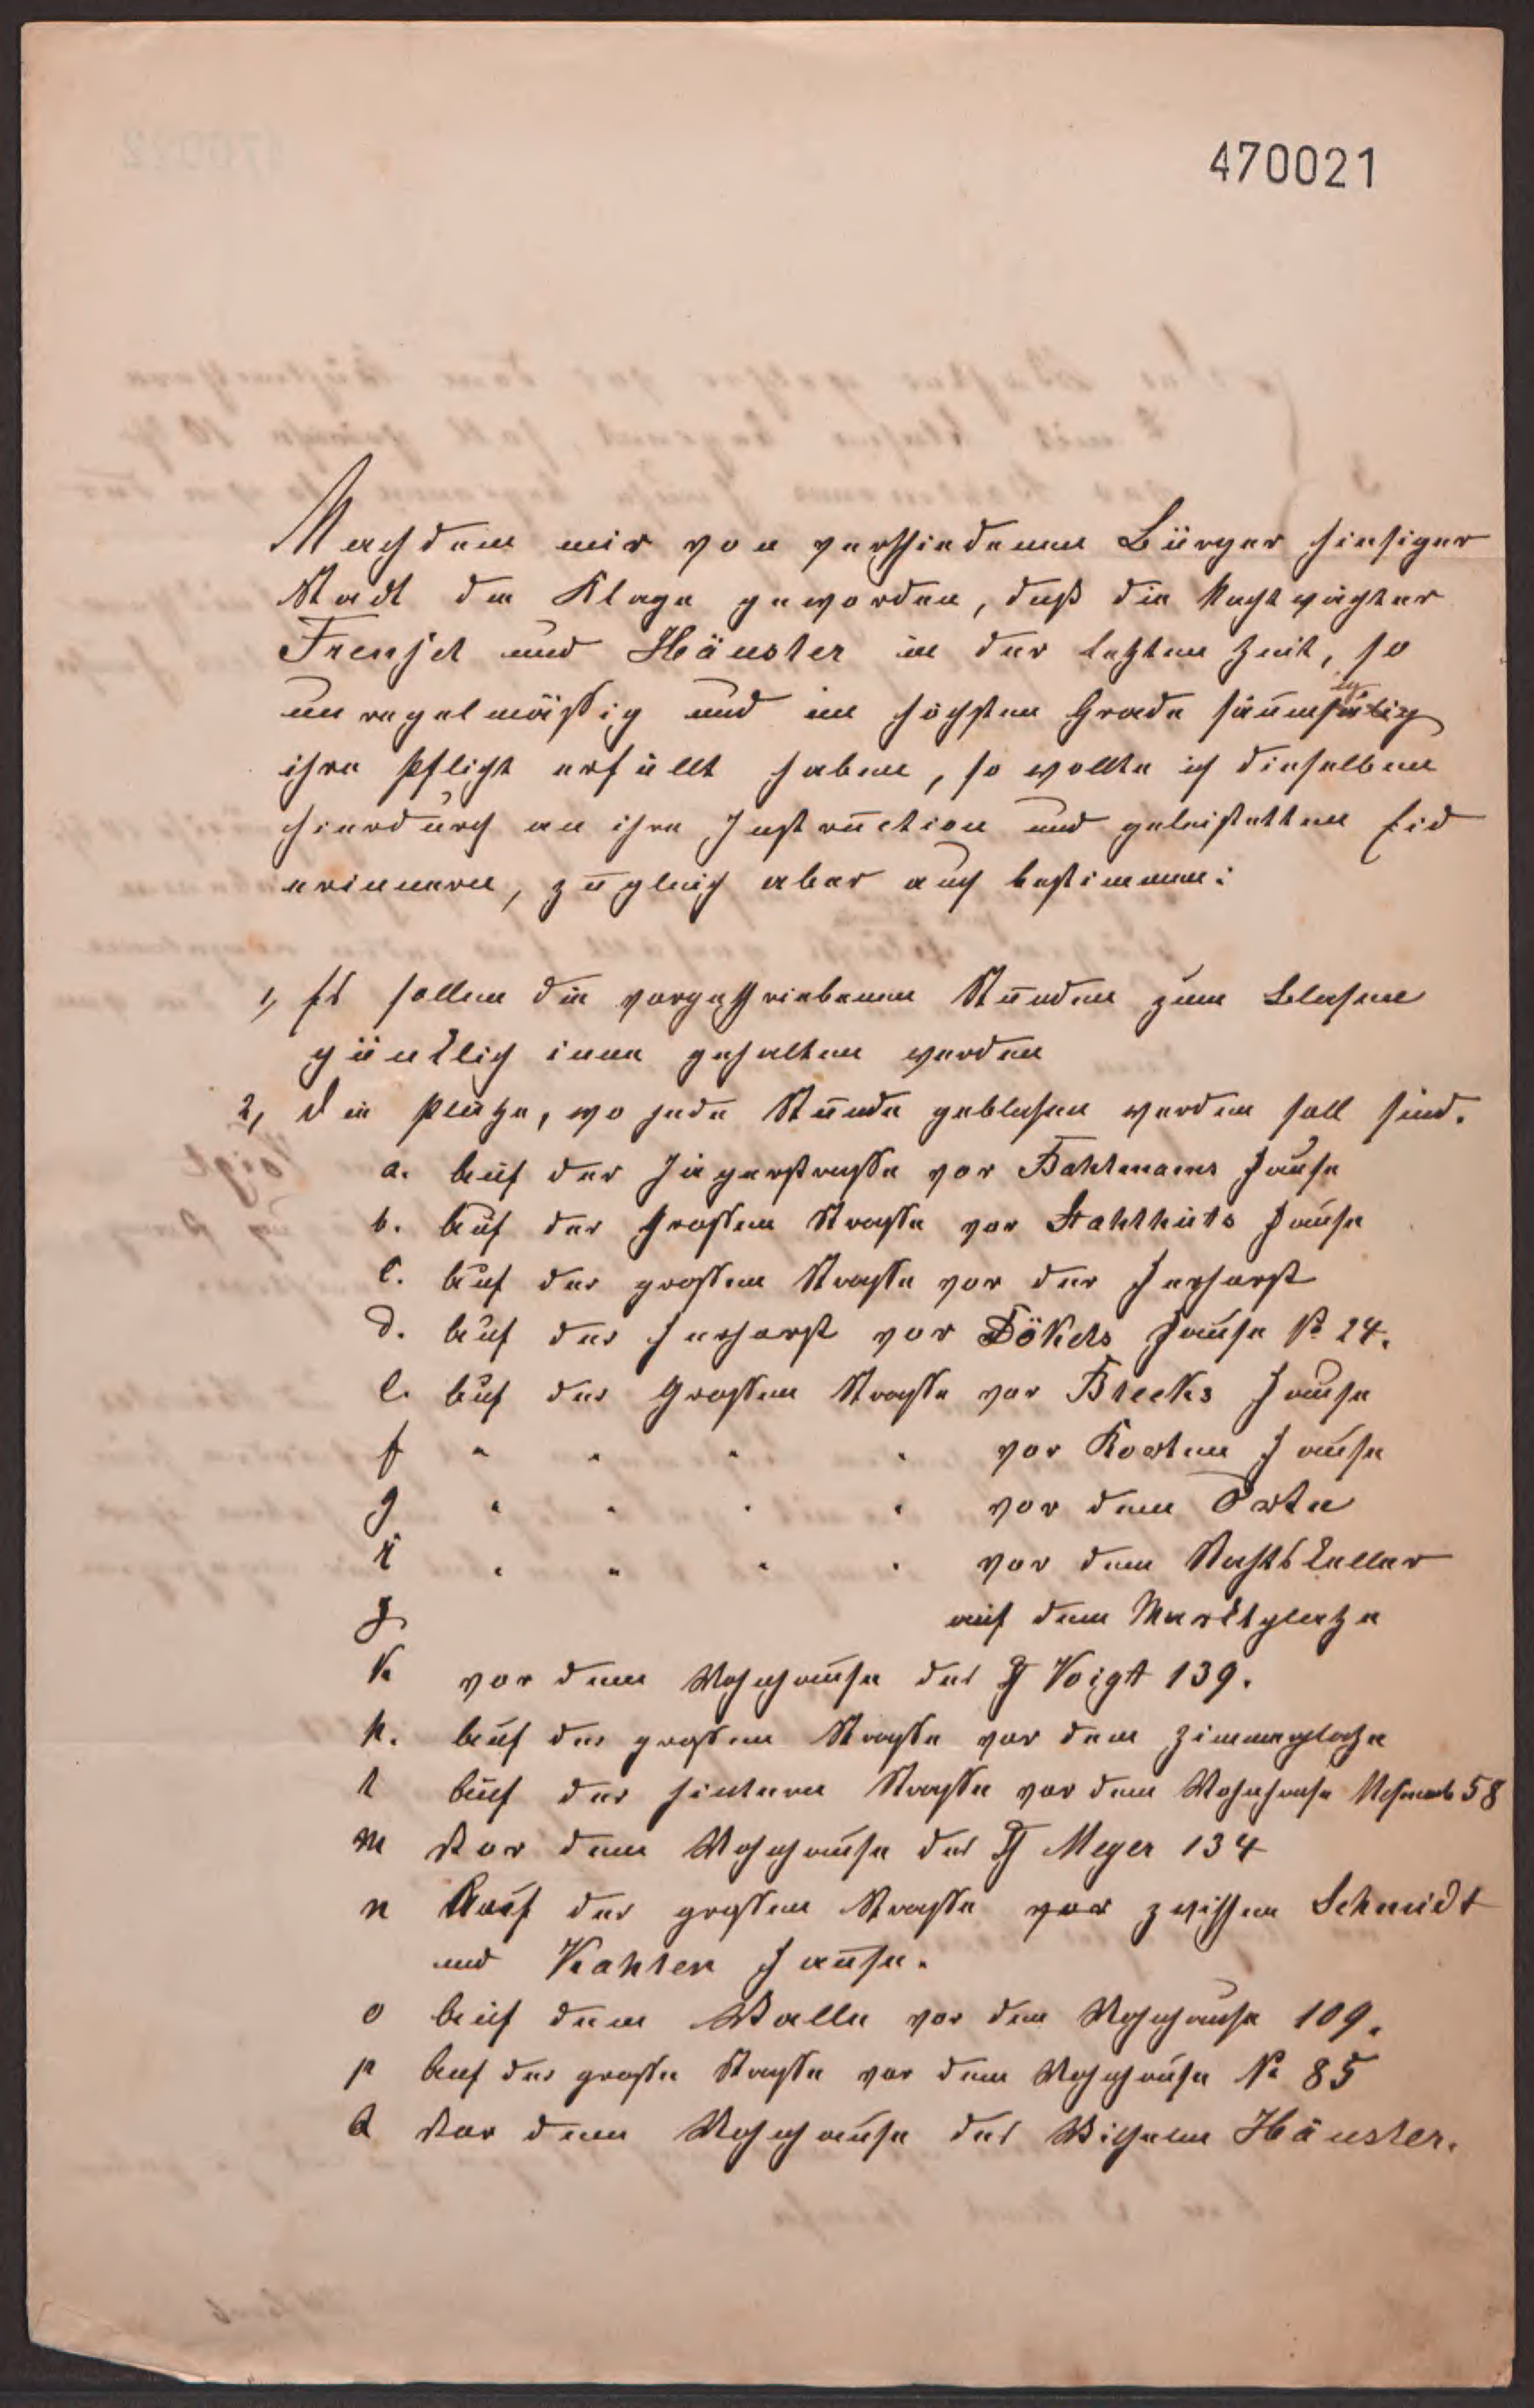 470021
Nachdem mir von verschiedenen Bürger hiesiger
Stadt die Klage geworden, daß die Nachtwächter
Frensel und Häusler in der letzten Zeit, so
unregelmäßig und im höchsten Grade säumselig
ihre Pflicht erfüllt haben, so wollte ich dieselben
hierdurch an ihre Instruction und geleisteten Eid
erinnern, zugleich aber auch bestimmen:
1, Es sollen die vorgeschriebenen Stunden zum Blasen
pünktlich inne gehalten werden
2, Die Plätze, wo jede Stunde geblasen werden soll sind.
a. Auf der Jägerstrasse vor Bahlmanns Hause
b. Auf der Grossen Strasse vor Stahlhuts Hause
c. Auf der grossen Strasse vor der
d. Auf der vor Dökels Hause No 24.
e. Auf der Grossen Strasse vor Breeks Hause
f " " " " vor Korten Hause
g " " " " vor dem Orte
h " " " " vor dem Rathskeller
J auf dem Marktplatze
K vor dem Wohnhause des Voigt 139.
k. Auf der grossen Strasse vor dem Zimmerplatze
l Auf der hintern Strasse vor dem Wohnhause 58
m Vor dem Wohnhause des Meyer 134
n Auf der grossen Strasse vor zwischen Schmidt
und Kahlen Hause.
o Auf dem Walle vor dem Wohnhause 109.
p Auf der grosse Strasse vor dem Wohnhause No 85
q Vor dem Wohnhause des Wilhelm Häusler.